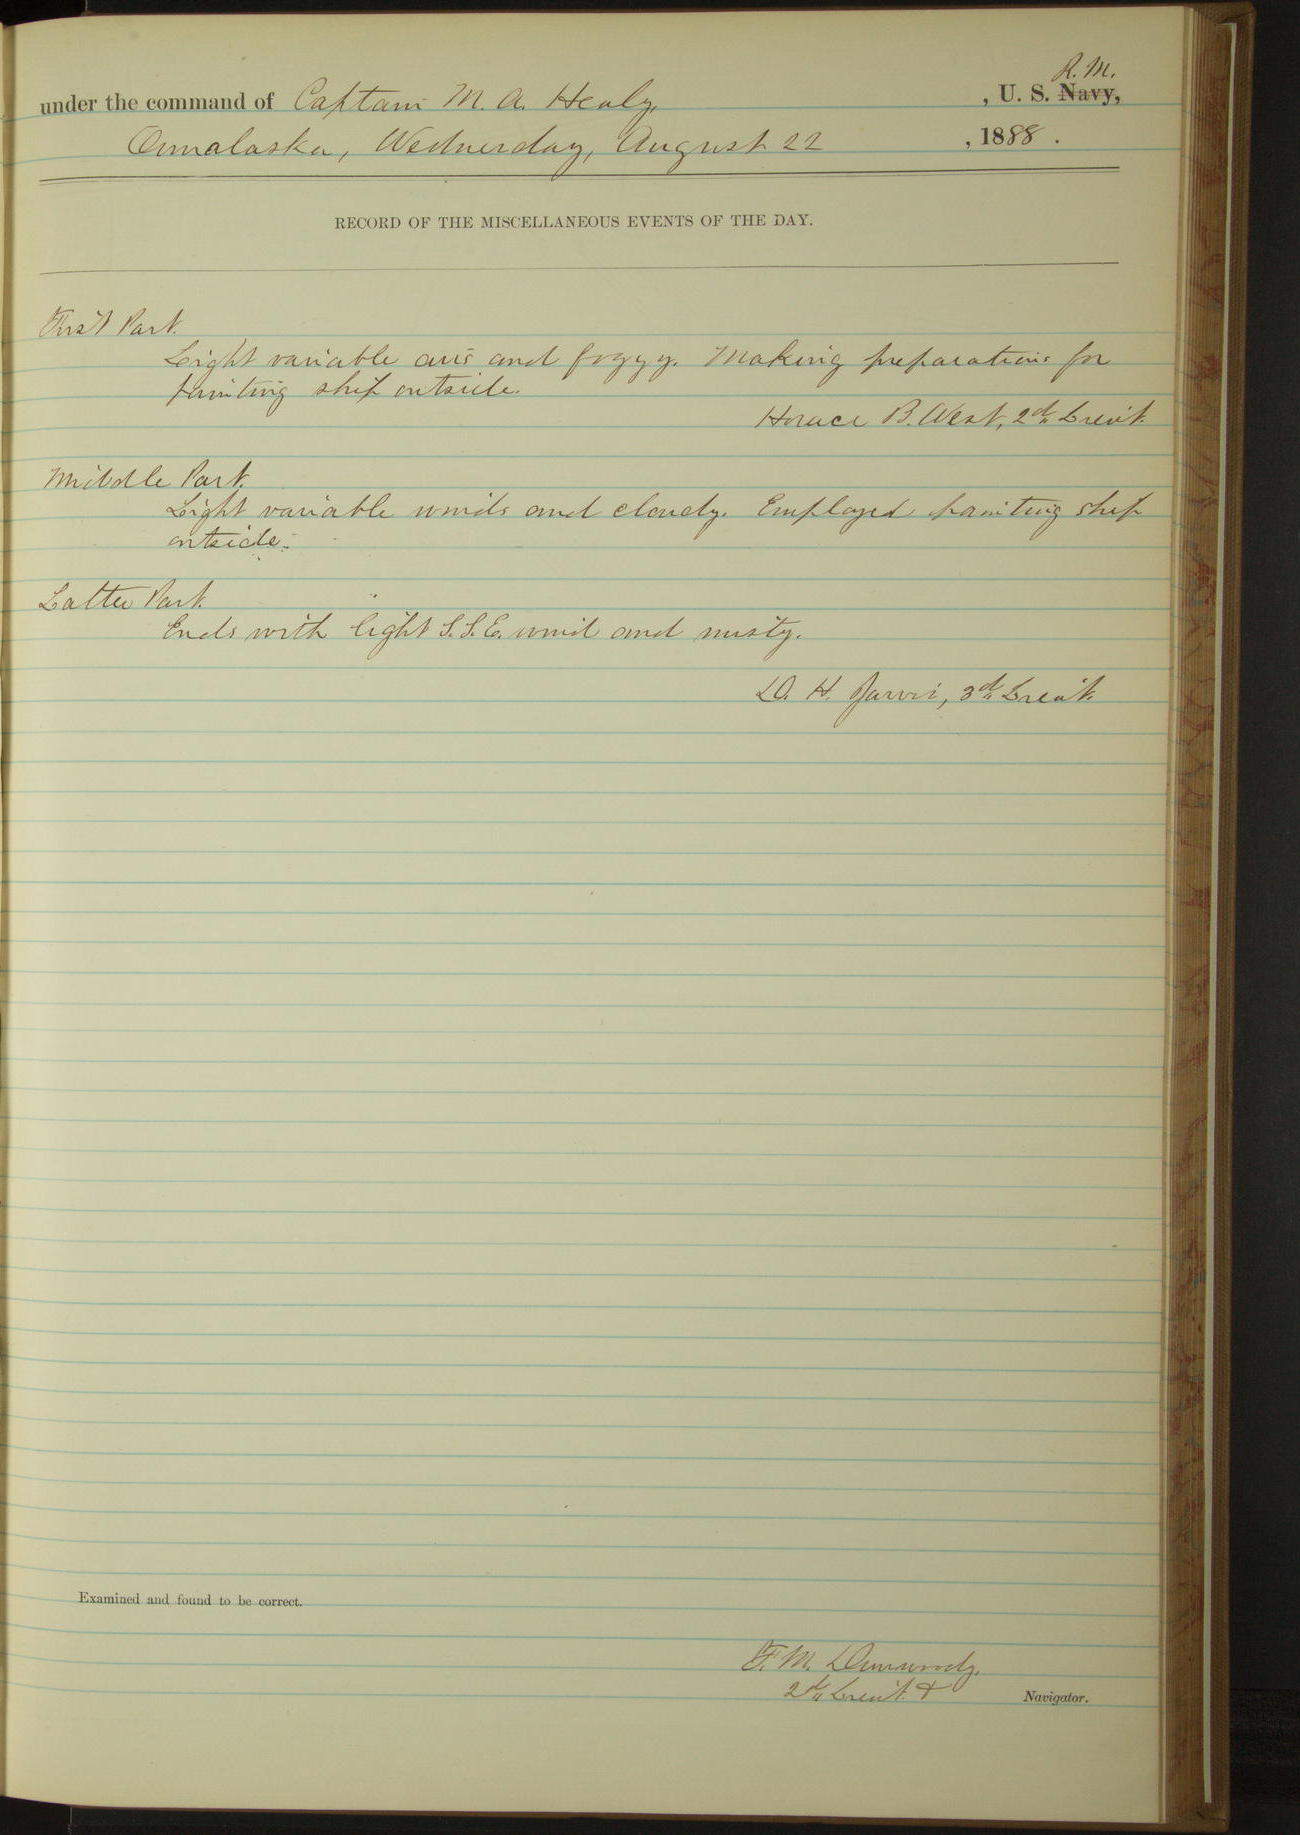 R. M.
under the command of Captain M. A. Healy, , U. S. Navy,
Ounalaska, Wednesday, August 22 , 1888 .
RECORD OF THE MISCELLANEOUS EVENTS OF THE DAY.
First Part.
Light variable airs and foggy. Making preparations for
painting ship outside.
Horace B. West, 2d Lieut.
Middle Part.
Light variable winds and cloudy. Employed painting ship
outside.
Latter Part.
Ends with light S.S.E. wind and misty.
D. H. Jarvis, 3d Lieut.
Examined and found to be correct.
F. M. Dunwoody,
2d Lieut. & Navigator.